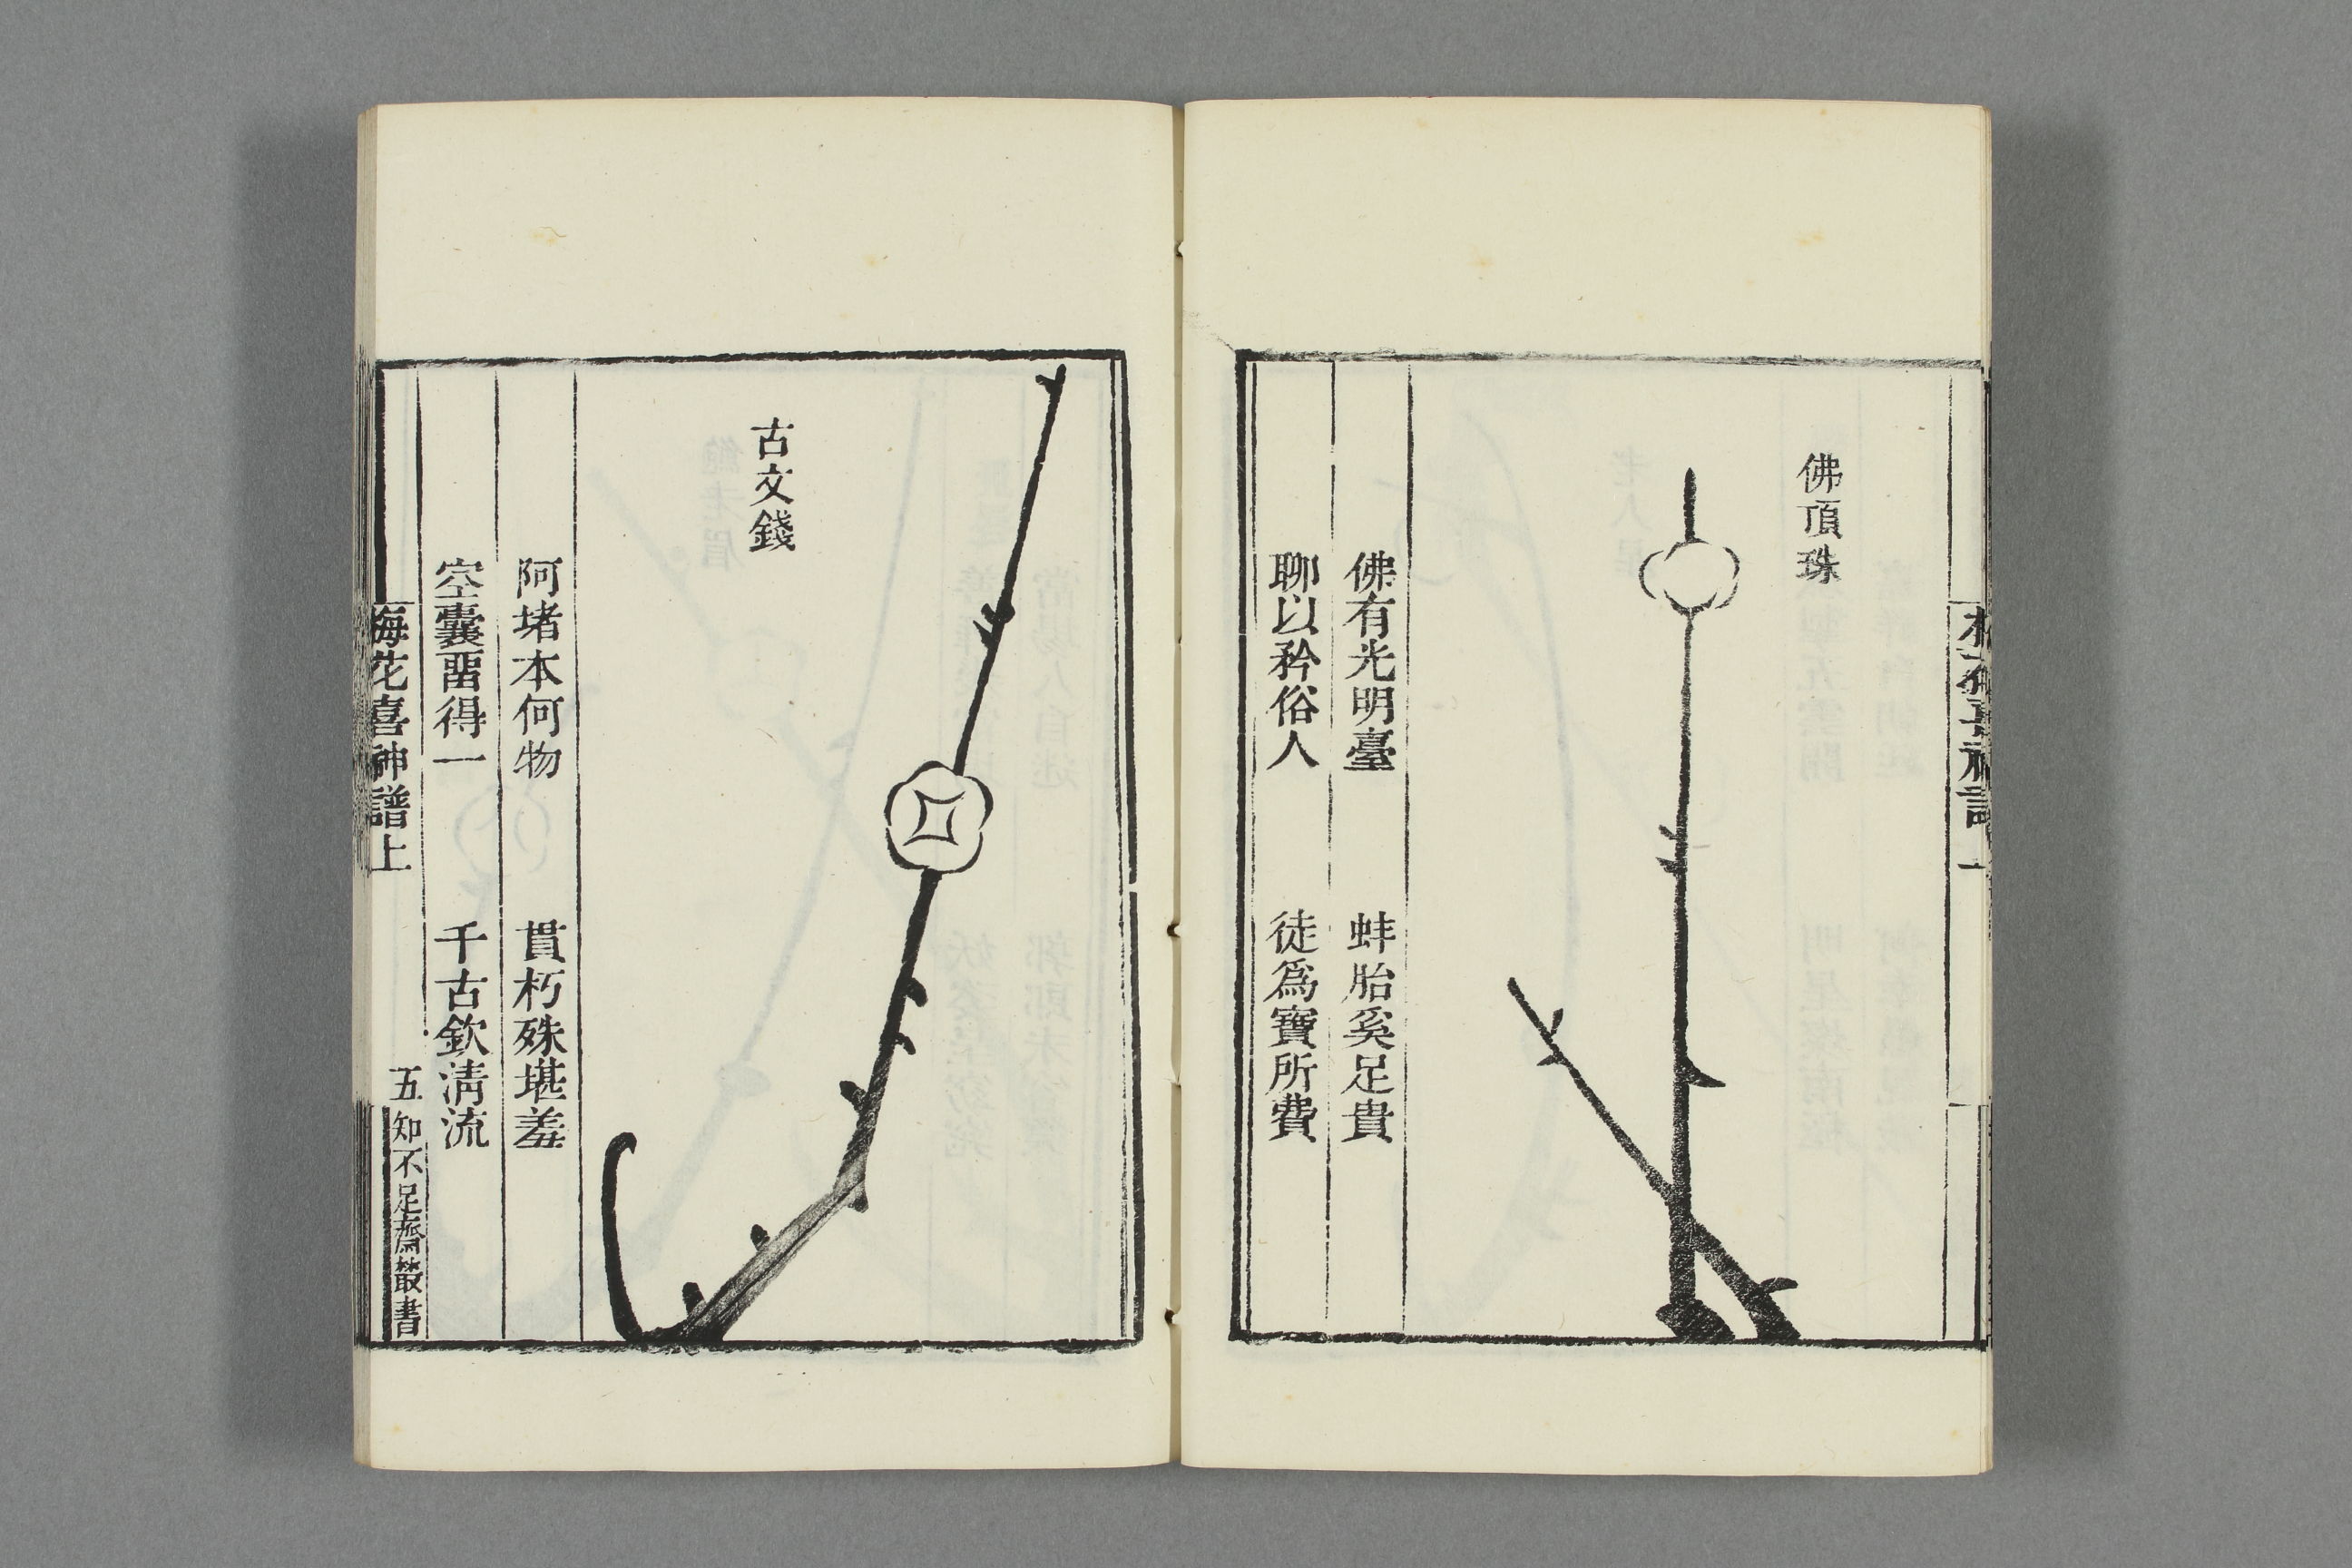 佛頂珠
佛有光明臺　蚌胎奚足貴
聊以矜俗人　徒爲寶所費
古文錢
阿堵本何物　貫朽殊堪羞
空囊畱得一　千古欽淸流
梅花喜神譜上　五　知不足齋叢書